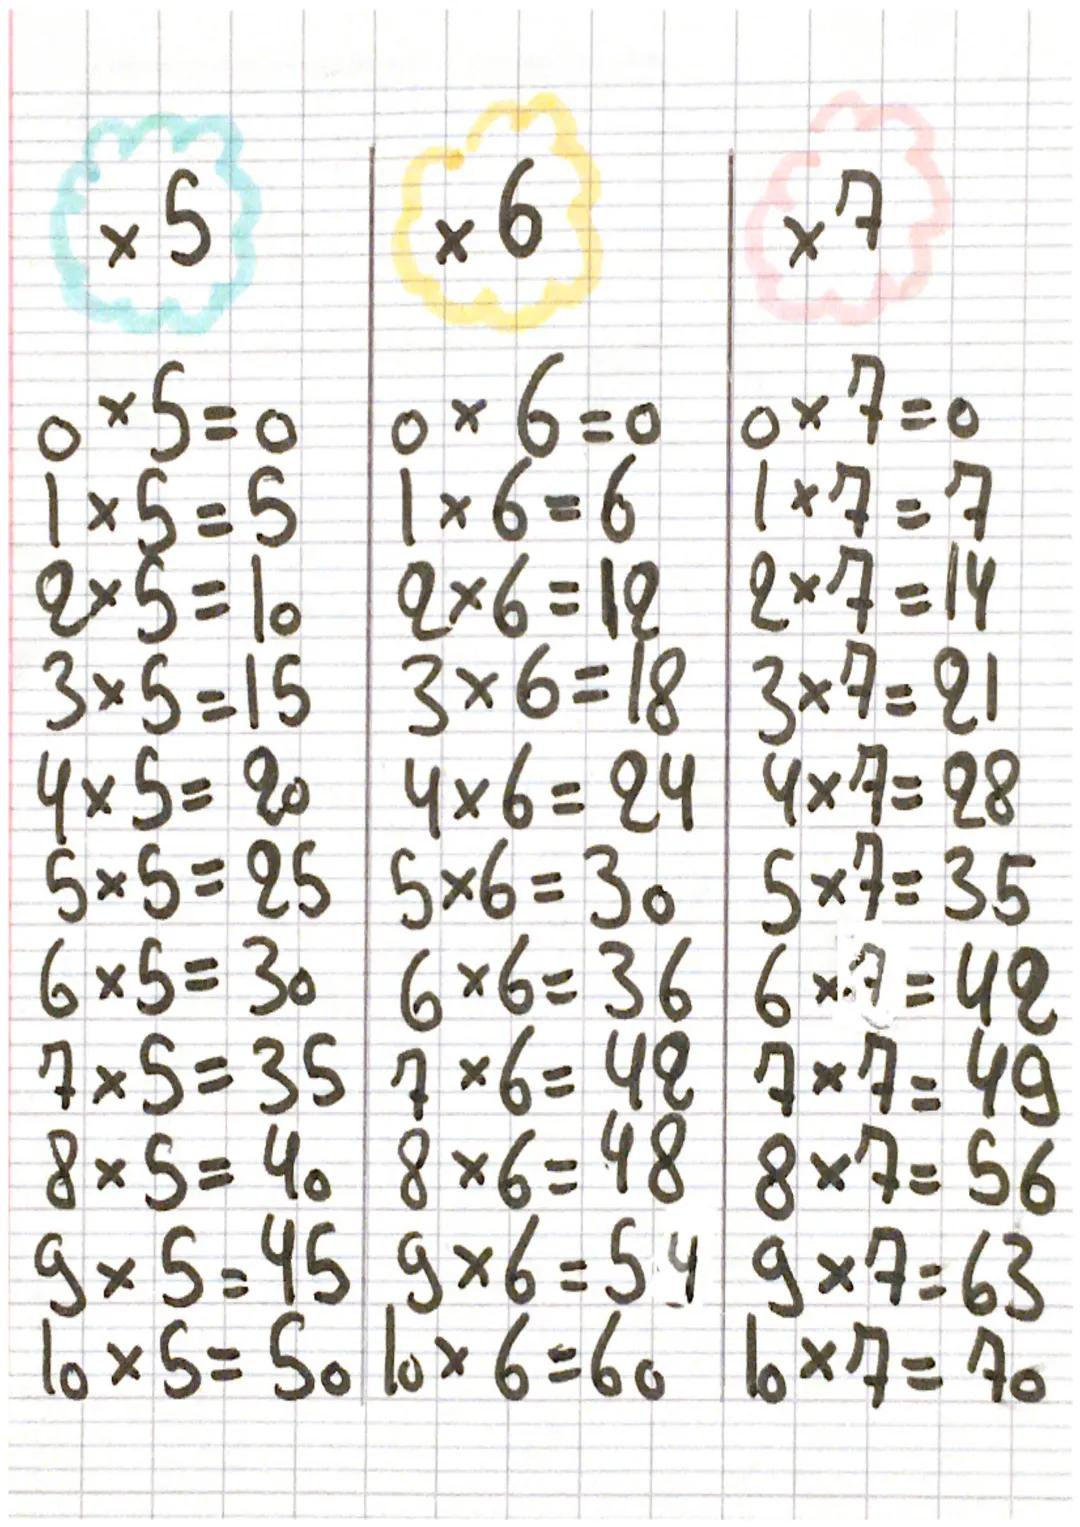 × 5
0 × 5 = 0
1 × 5 = 5
2 × 5 = 10
3 × 5 = 15
4 × 5 = 20
5 × 5 = 25
6 × 5 = 30
7 × 5 = 35
8 × 5 = 40
9 × 5 = 45
10 × 5 = 50
× 6
0 × 6 = 0
1 × 6 = 6
2 × 6 = 12
3 × 6 = 18
4 × 6 = 24
5 × 6 = 30
6 × 6 = 36
7 × 6 = 42
8 × 6 = 48
9 × 6 = 54
10 × 6 = 60
× 7
0 × 7 = 0
1 × 7 = 7
2 × 7 = 14
3 × 7 = 21
4 × 7 = 28
5 × 7 = 35
6 × 7 = 42
7 × 7 = 49
8 × 7 = 56
9 × 7 = 63
10 × 7 = 70